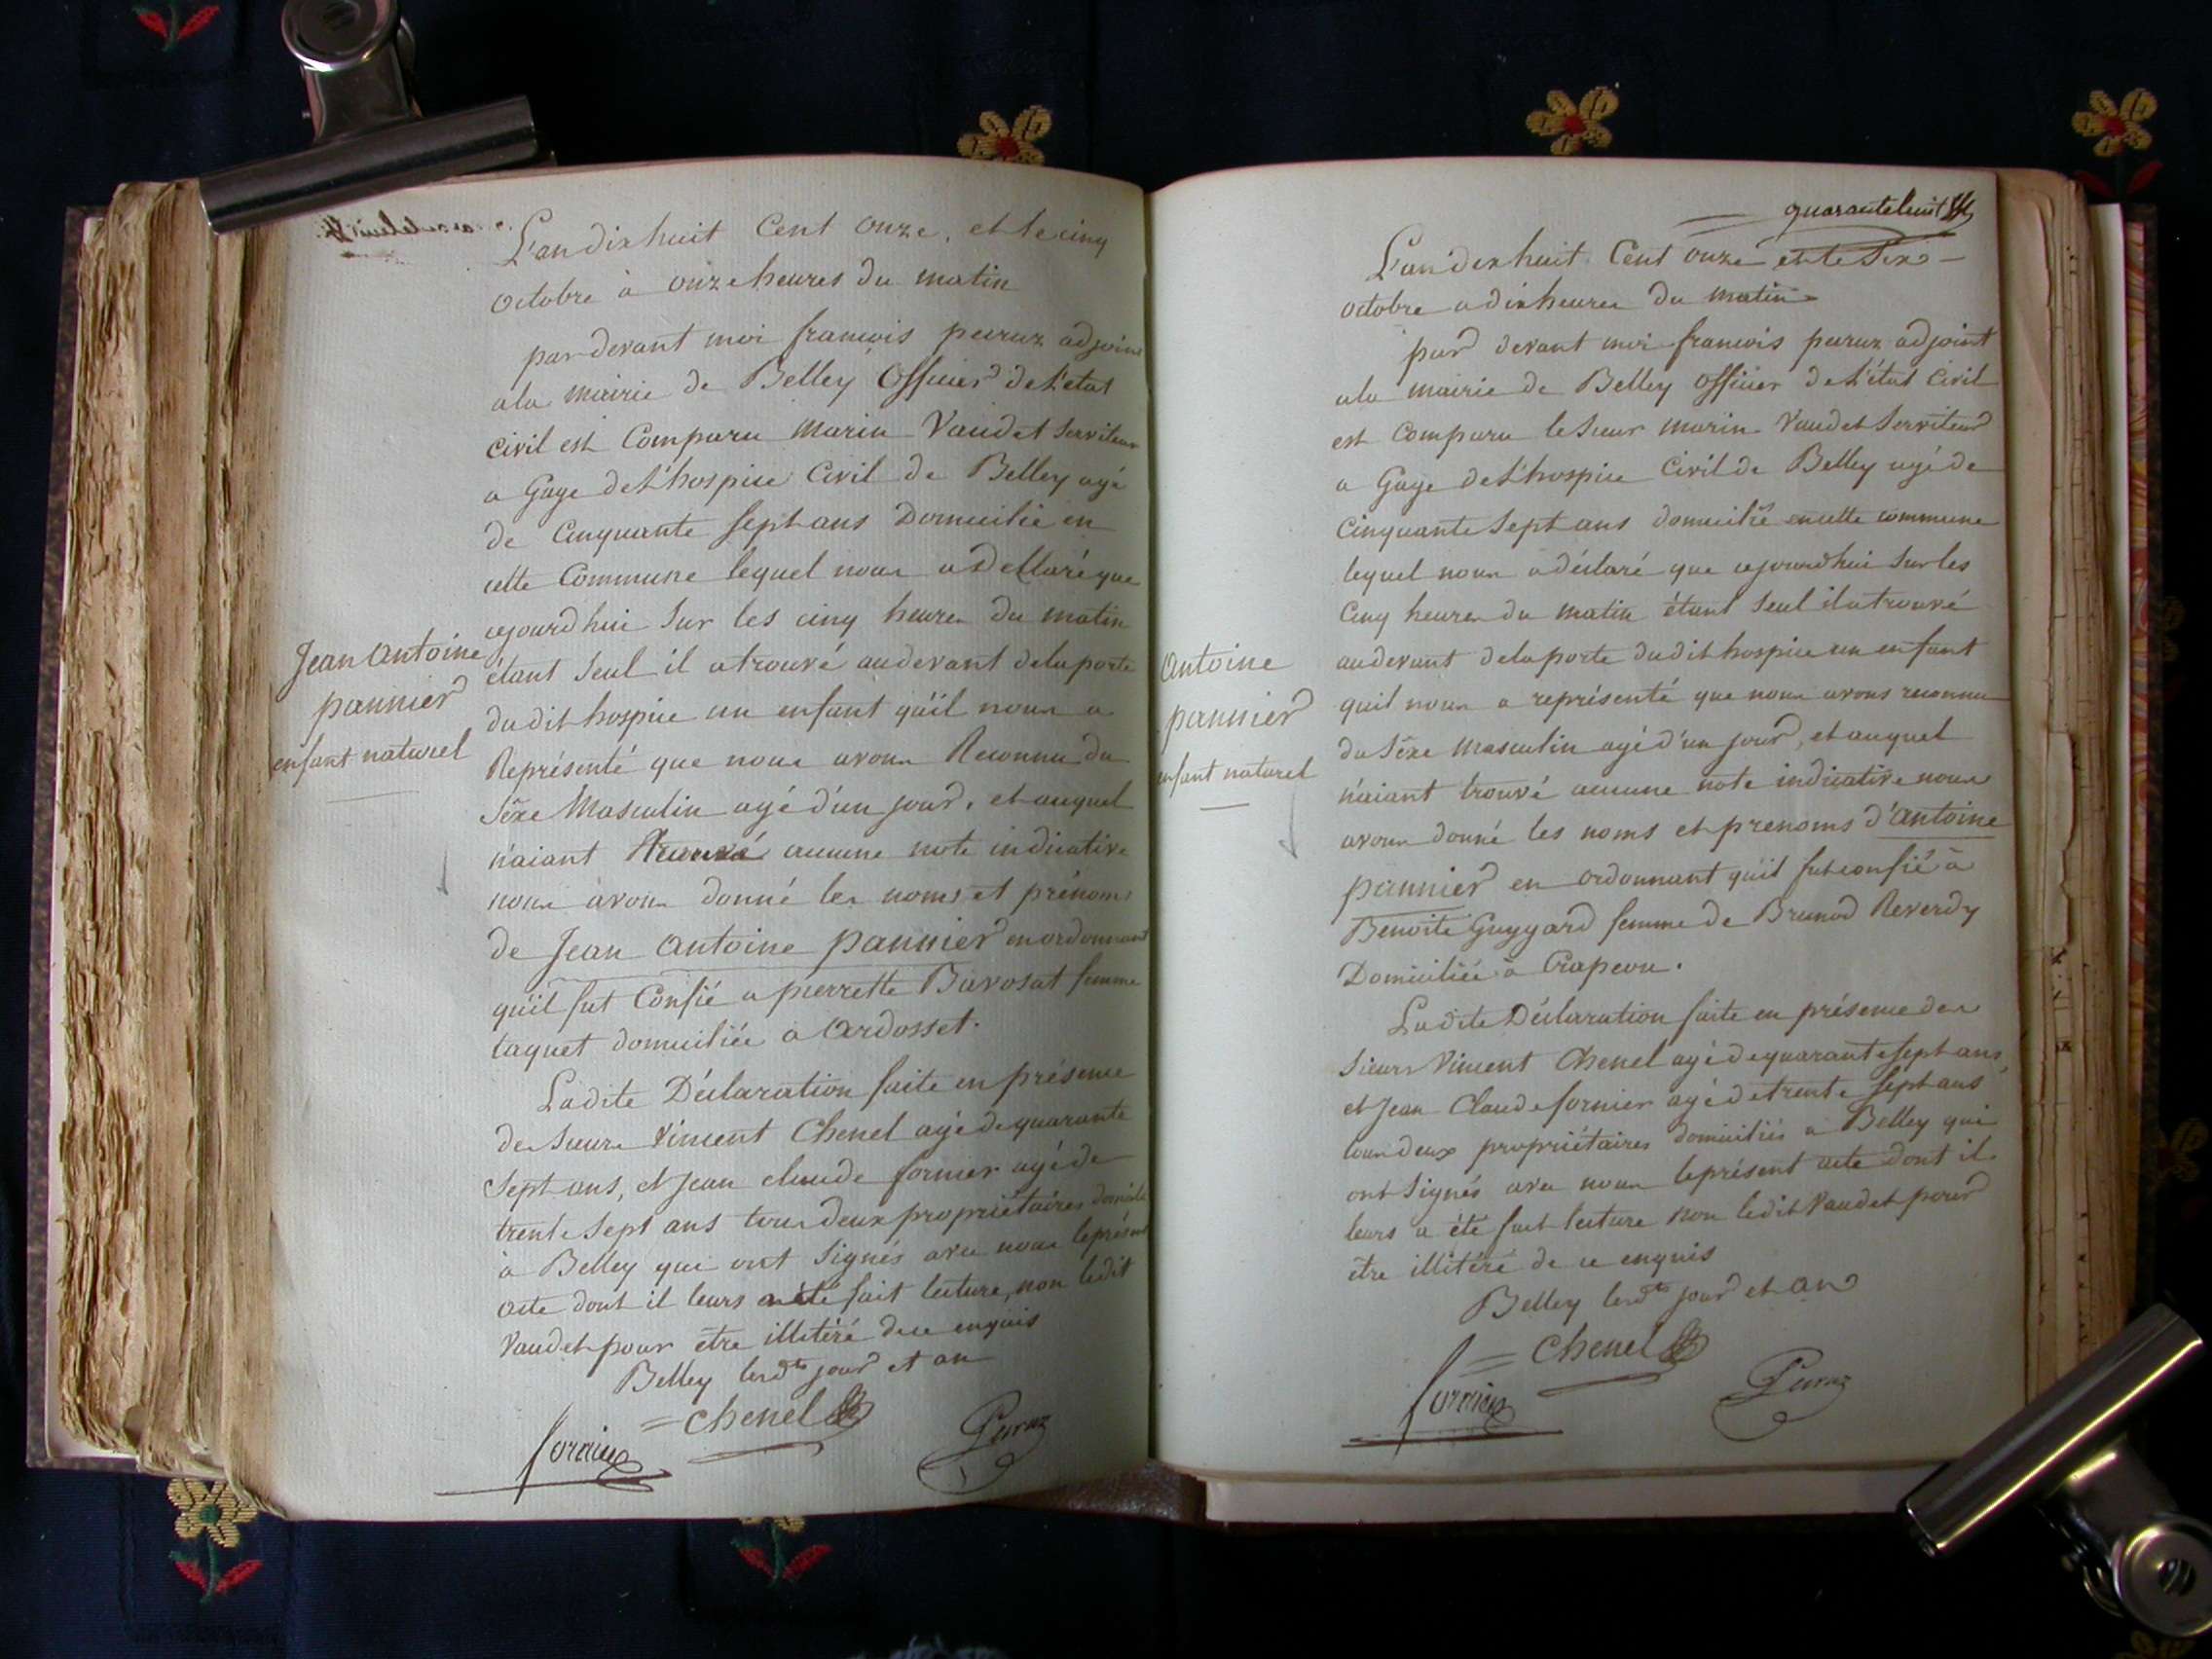 L'an dix huit Cent onze, et le cinq
octobre à onze heures du matin
par devant moi francois peruz adjoint
a la mairie de Belley Officier de L'état
civil est Comparu Marin Vaudet Serviteur
a Gage de L'hospice Civil de Belley agé
de Cinquante sept ans Domicilié en
cette Commune lequel nous a déclaré que
ajourd'hui sur les cinq heures du matin
étant seul il a trouvé au devant de la porte
du dit hospice un enfant qu'il nous a
Représenté que nous avons Reconnu du
Sexe Masculin agé d'un jour, et auquel
n'aiant trouvé aucune note indicative
nous avons donné les noms et prénoms
de Jean Antoine pannier en ordonnant
qu'il fut Confié a pierrette Bavosat femme
taquet domiciliée a Ardosset.
La dite Déclaration faite en présence
des Sieurs Vincent Chenel agé de quarante
sept ans, et Jean claude fornier agé de
trente sept ans tous deux propriétaires
à Belley qui ont signés avec nous le présent
acte dont il leurs a été fait lecture, non ledit
Vaudet pour être illitéré de ce enquis
Belley lesdts jour et an
Jean Antoine
pannier
enfant naturel
= Chenel
fornier
Peruz
quarante huit
L'an dix huit Cent onze et le Six
octobre a dix heures du matin
par devant moi francois peruz adjoint
a la mairie de Belley officier de L'état Civil
est Comparu le Sieur marin Vaudet Serviteur
a Gage de L'hospice Civil de Belley agé de
Cinquante Sept ans domicilié en cette commune
lequel nous a déclaré que ajourd'hui sur les
Cinq heures du matin étant seul il a trouvé
au devant de la porte du dit hospice un enfant
quil nous a représenté que nous avons reconnu
du Sexe Masculin agé d'un jour, et auquel
n'aiant trouvé aucune note indicative nous
avons donné les noms et prenoms d'Antoine
pannier en ordonnant qu'il fut confié à
Benoite Guygard femme de Brunod Reverdy
Domiciliée à Crapeou.
La dite Déclaration faite en présence des
Sieurs Vincent Chenel agé de quarante sept ans
et Jean Claude fornier agé de trente sept ans
tous deux propriétaires domiciliés a Belley qui
ont signés avec nous le présent acte dont il
leurs a été fait lecture non ledit Vaudet pour
être illitéré de ce enquis
Belley lesdts jour et an
Antoine
pannier
enfant naturel
= Chenel
fornier
Peruz